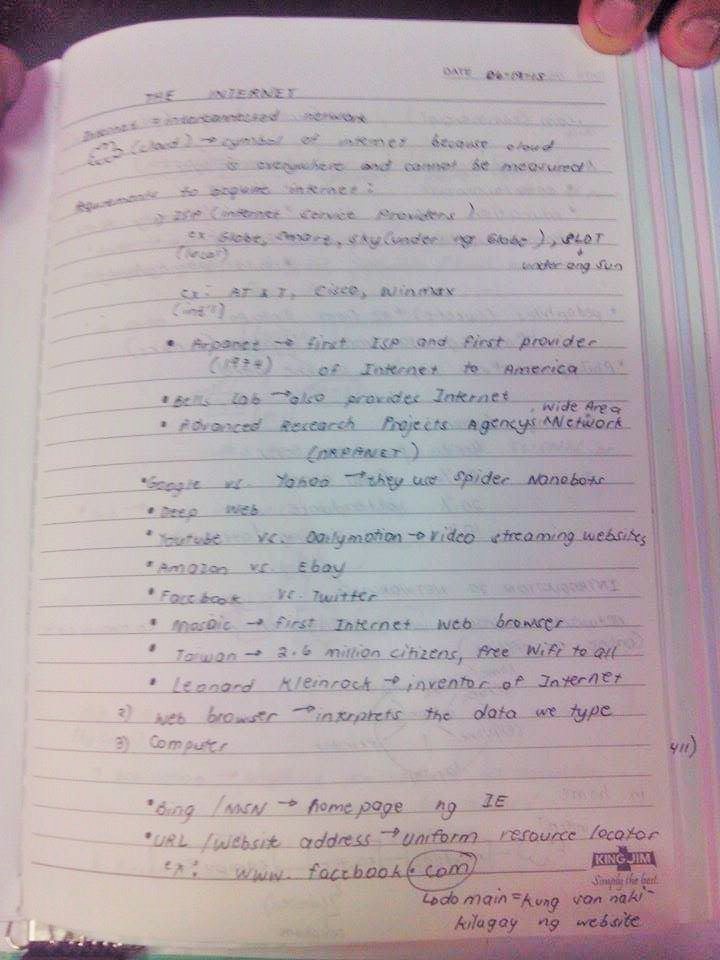 DATE 06-19-15
THE INTERNET
Internet = interconnected network
(cloud) → symbol of internet because cloud
is everywhere and cannot be measured!
Rquirements to acquire internet:
1) ISP (Internet Service Providers)
ex Globe, Smart, Sky (under ng Globe), PLDT
(local) under ang Sun
ex: AT&T, Cisco, Winmax
(int'l)
• Arpanet → first ISP and first provider
(1974) of Internet to America
• Bells Lab → also provides Internet
Wide Area
• Advanced Research Projects Agencys ^ Network
(ARPANET)
• Google vs. Yahoo → they use Spider Nanobots
• Deep Web
• Youtube vs. Dailymotion → video streaming websites
• Amazon vs. Ebay
• Facebook vs. Twitter
• Mosaic → first Internet web browser
• Taiwan → 2.6 million citizens, free WiFi to all
• Leonard Kleinrock → inventor of Internet
2) Web browser → intrptets the data we type
3) Computer
411)
• Bing / MSN → homepage ng IE
• URL / website address → uniform resource locator
ex: www.facebook.com
KING JIM
Simply the best.
domain = kung san naki-
kilagay ng website